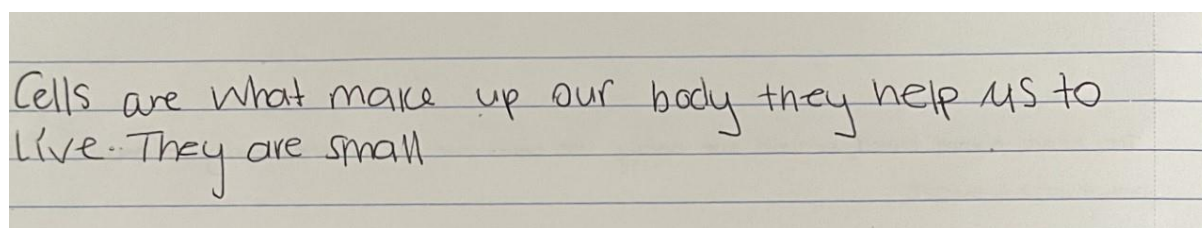 Cells are what make up our body they help us to
live. They are small